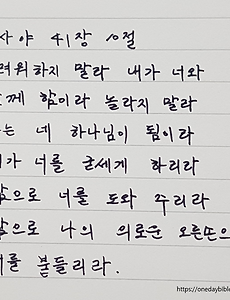 사야 41장 10절
려워하지 말라 내가 너와
께 함이라 놀라지 말라
는 네 하나님이 됨이라
가 너를 굳세게 하리라
으로 너를 도와 주리라
으로 나의 의로운 오른손으
를 붙들리라.
https://onedaybible